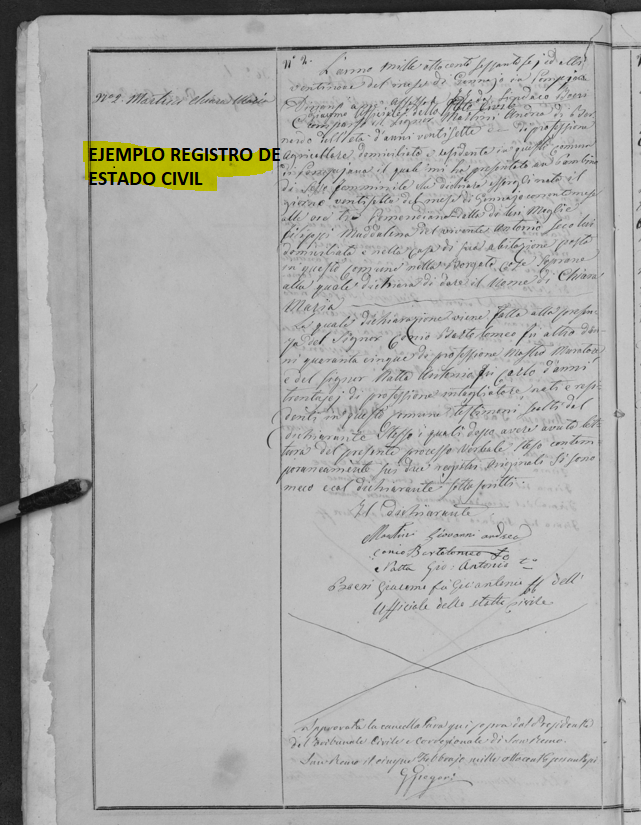 N° 2. Martini Chiara Maria
EJEMPLO REGISTRO DE
ESTADO CIVIL
N° 2.
L'anno mille ottocento sessantasei ed alli
ventinove del mese di Gennajo in Pompejana
Dinanzi a me Assessore ff di Sindaco Boeri
Giacomo Uffiziale dello Stato Civile
comparso il Signor Martini Andrea di
dell'età d'anni ventisette di professione
Agricoltore domiciliato e residente in questo comune
di Pompejana il quale mi ha presentato un bambino
di sesso femminile che dichiara essergli nato il
giorno ventisette del mese di Gennajo corrente mese
alle ore tre pomeridiane dalla di lui Moglie
Filippi Maddalena del vivente Antonio seco lui
domiciliata e nella casa di sua abitazione posta
in questo Comune nella Borgata
alla quale dichiara di dare il nome di Chiara
Maria
La quale dichiarazione viene fatta alla presen-
za del Signor Conio Bartolomeo fu altro d'an-
ni quaranta cinque di professione Mastro Muratore
e del Signor Natta Antonio fu Carlo d'anni
trentasei di professione nati e resi-
denti in questo comune testimoni scelti dal
dichiarante stesso i quali dopo avere avuto let-
tura del presente processo verbale steso contem-
poraneamente sui due registri originali si sono
meco e col dichiarante sottoscritti
Il dichiarante
Martini Giovanni Andrea
Conio Bartolomeo
Natta Gio: Antonio
Boeri Giacomo fu Gio Antonio ff dell'
Ufficiale dello stato Civile
Approvata la cancellatura qui sopra dal Presidente
del Tribunale Civile e correzionale di San Remo.
San Remo il cinque Febbrajo mille ottocento